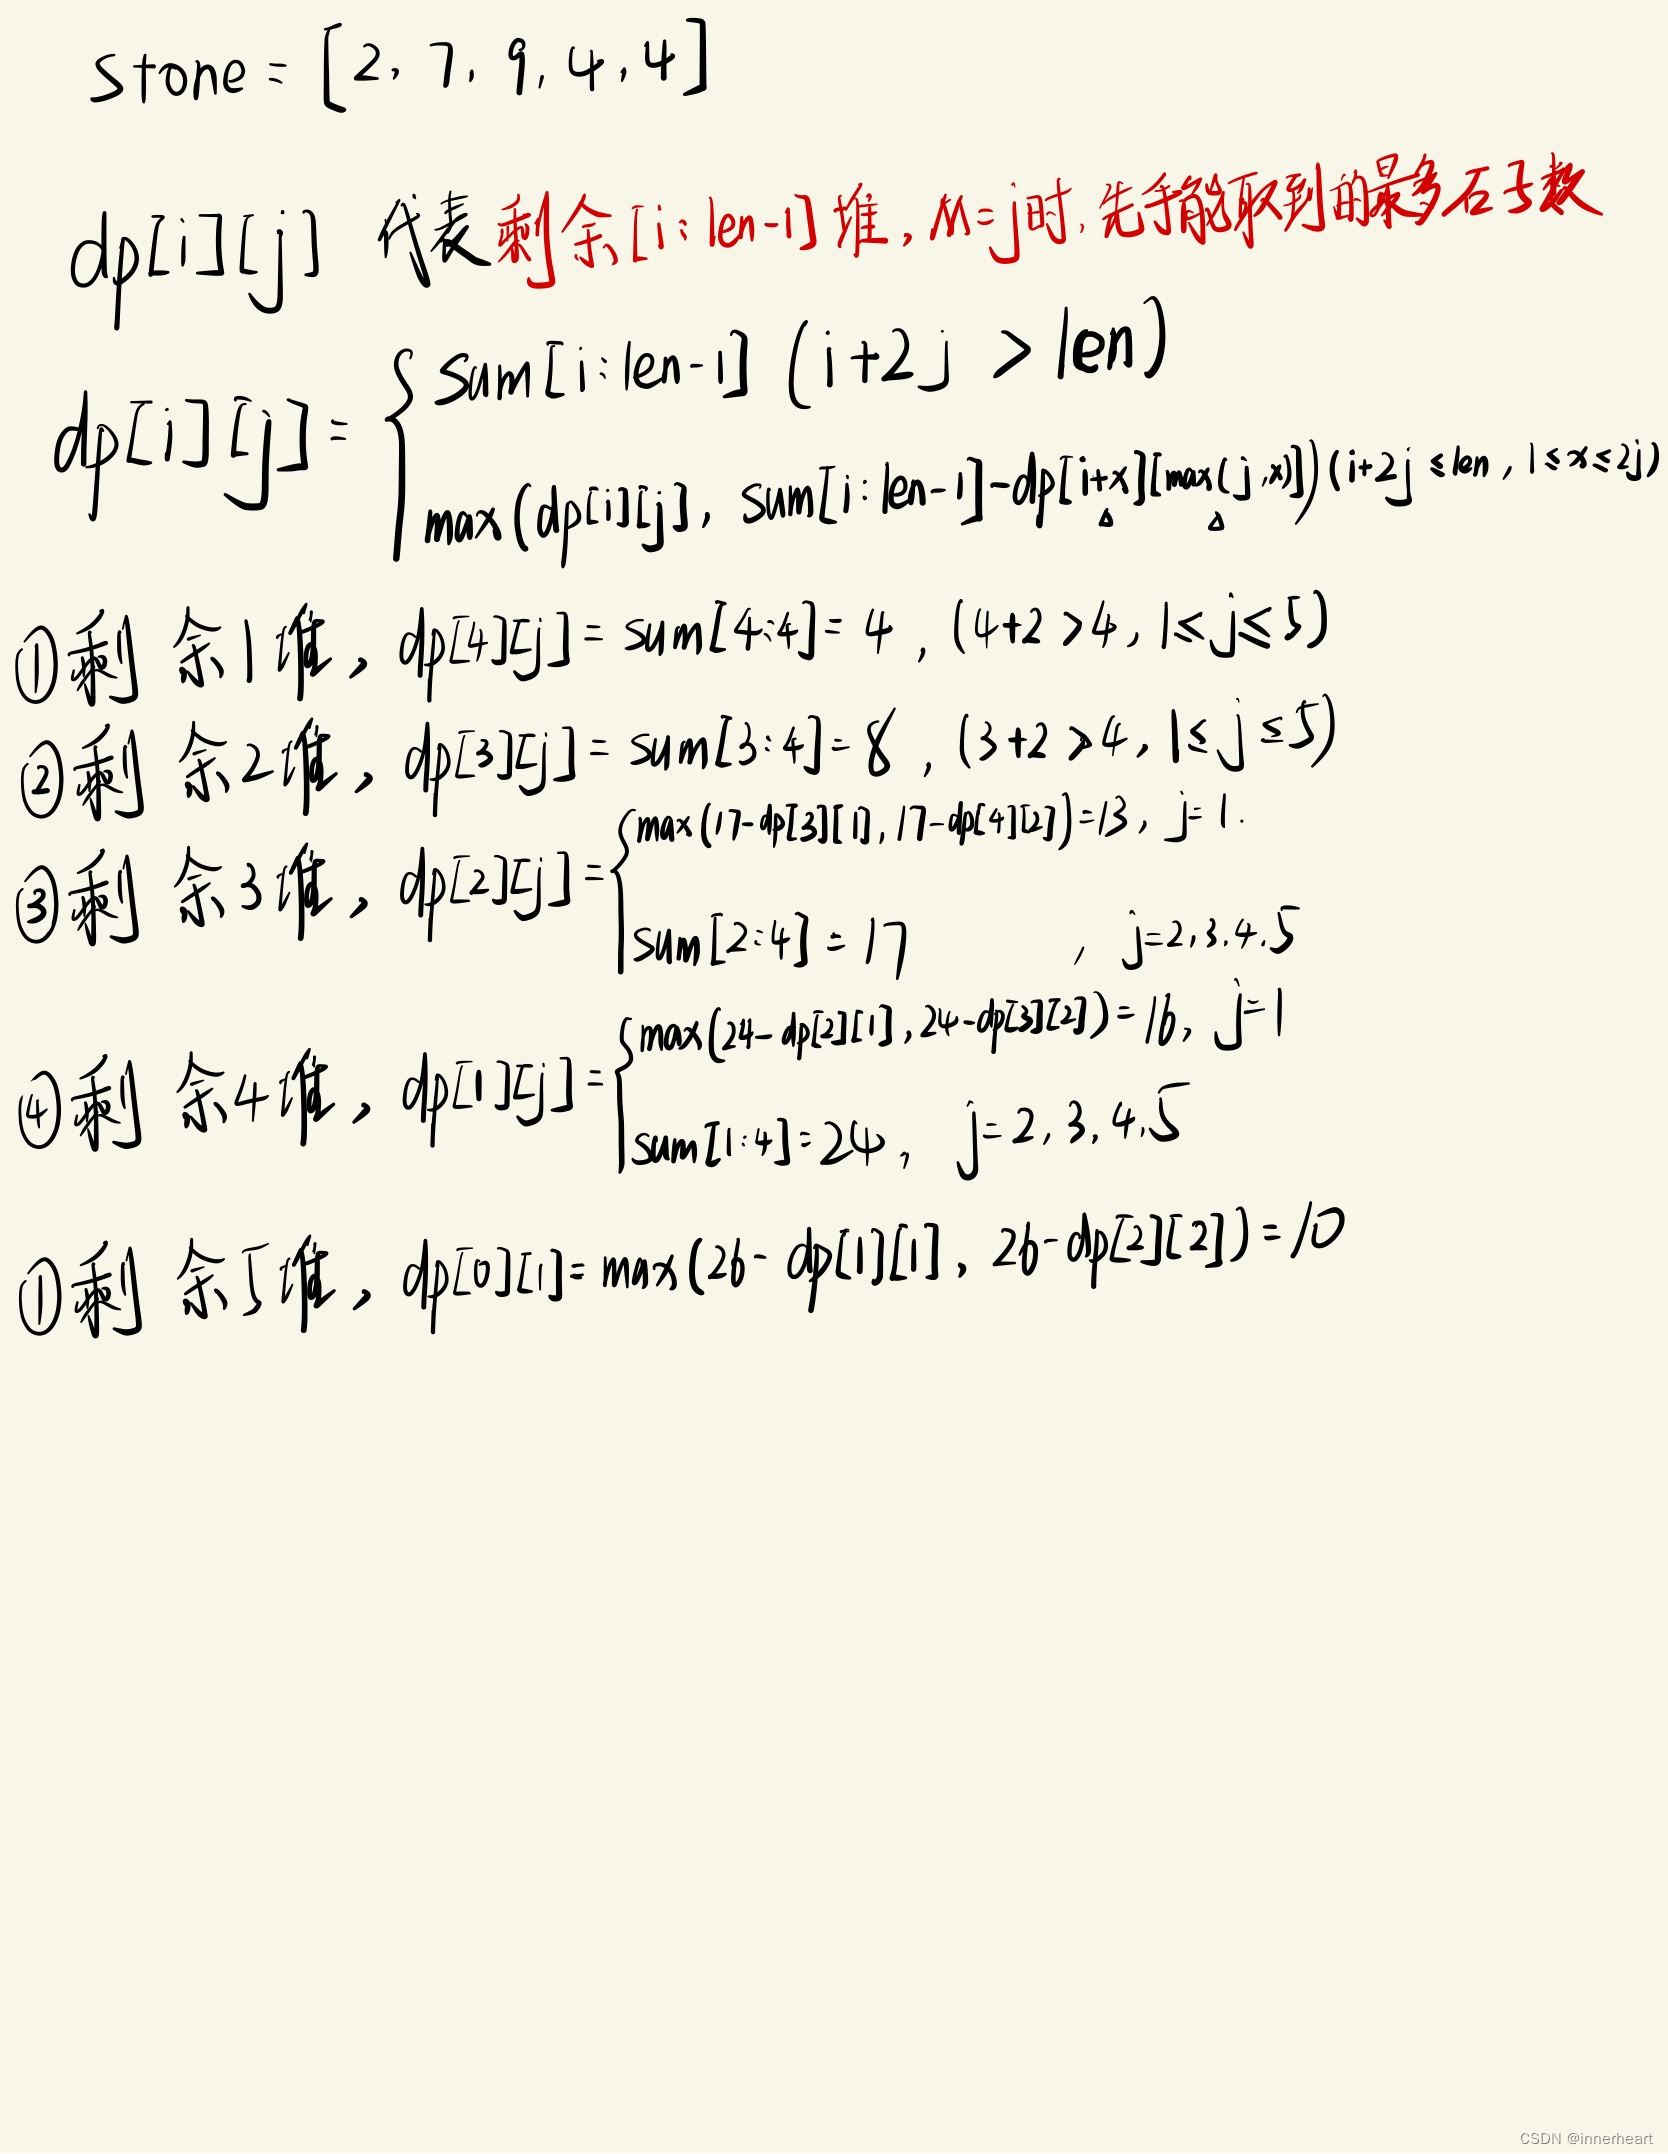 stone = [2, 7, 9, 4, 4]
dp[i][j] 代表剩余[i:len-1]堆, M=j时, 先手能取到的最多石子数
dp[i][j] = { sum[i:len-1] (i+2j > len)
max(dp[i][j], sum[i:len-1]-dp[i+x][max(j,x)]) (i+2j ≤ len, 1≤x≤2j)
①剩余1堆, dp[4][j] = sum[4:4] = 4, (4+2>4, 1≤j≤5)
②剩余2堆, dp[3][j] = sum[3:4] = 8, (3+2>4, 1≤j≤5)
③剩余3堆, dp[2][j] = { max(17-dp[3][1], 17-dp[4][2]) = 13, j=1.
sum[2:4] = 17, j=2,3,4,5
④剩余4堆, dp[1][j] = { max(24-dp[2][1], 24-dp[3][2]) = 16, j=1
sum[1:4] = 24, j=2,3,4,5
①剩余5堆, dp[0][1] = max(26-dp[1][1], 26-dp[2][2]) = 10
CSDN @innerheart